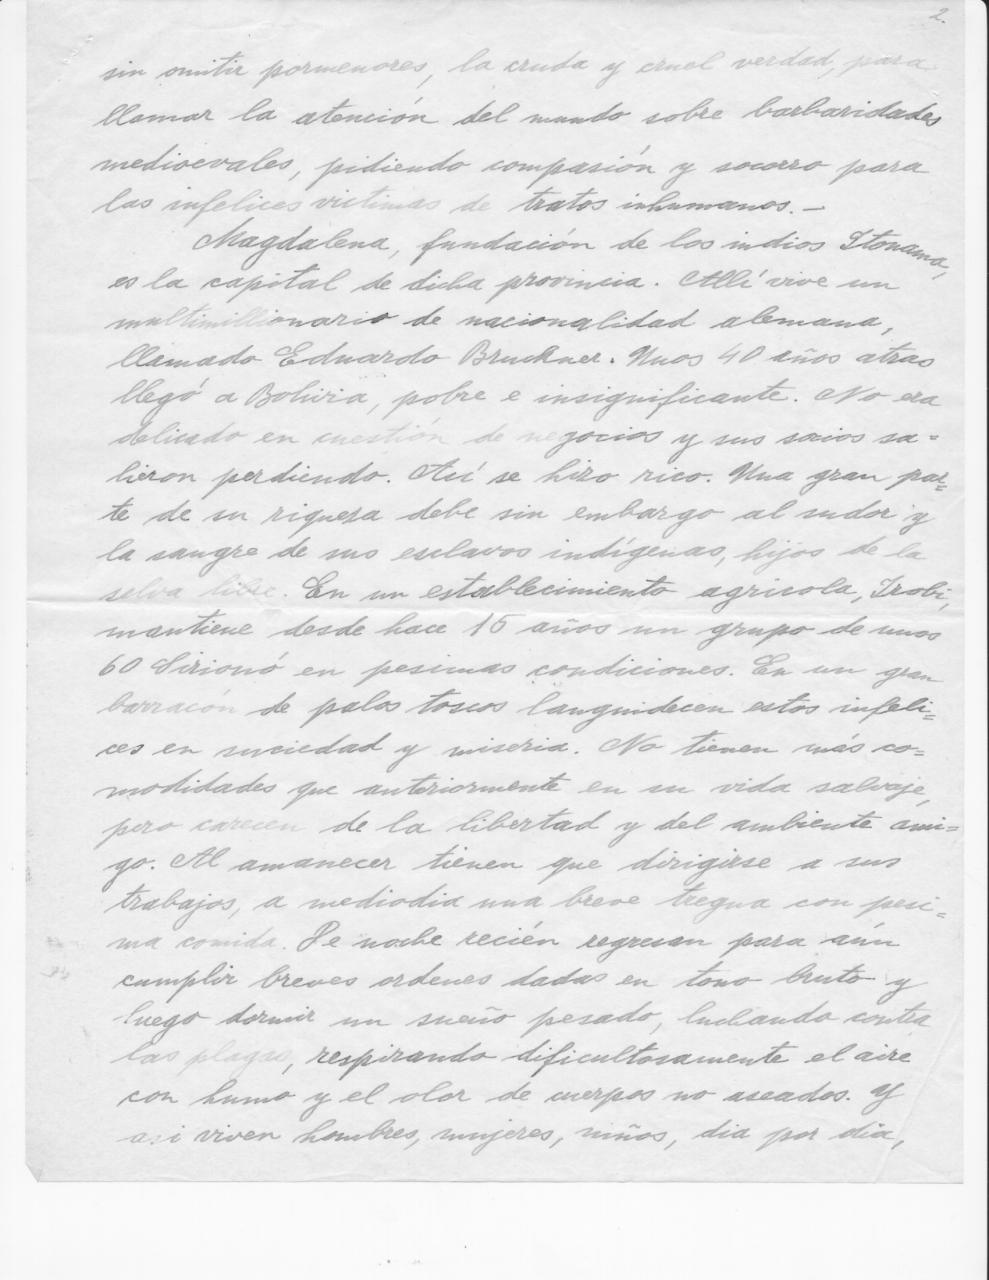 2.
sin omitir pormenores, la cruda y cruel verdad, para
llamar la atención del mundo sobre barbaridades
medioevales, pidiendo compasión y socorro para
las infelices victimas de tratos inhumanos.—
Magdalena, fundación de los indios Itonama,
es la capital de dicha provincia. Allí vive un
multimillionario de nacionalidad alemana,
llamado Eduardo Bruckner. Unos 40 años atras
llegó a Bolivia, pobre e insignificante. No era
delicado en cuestión de negocios y sus socios sa=
lieron perdiendo. Así se hizo rico. Una gran par=
te de su riqueza debe sin embargo al sudor y
la sangre de sus esclavos indígenas, hijos de la
selva libre. En un establecimiento agricola, Irobi,
mantiene desde hace 15 años un grupo de unos
60 Sirionó en pesimas condiciones. En un gran
barracón de palos toscos languidecen estos infeli=
ces en suciedad y miseria. No tienen más co=
modidades que anteriormente en su vida salvaje,
pero carecen de la libertad y del ambiente ami=
go. Al amanecer tienen que dirigirse a sus
trabajos, a mediodia una breve tregua con pesi=
ma comida. De noche recién regresan para aún
cumplir breves ordenes dadas en tono bruto y
luego dormir un sueño pesado, luchando contra
las plagas, respirando dificultosamente el aire
con humo y el olor de cuerpos no aseados. Y
asi viven hombres, mujeres, niños, dia por dia,